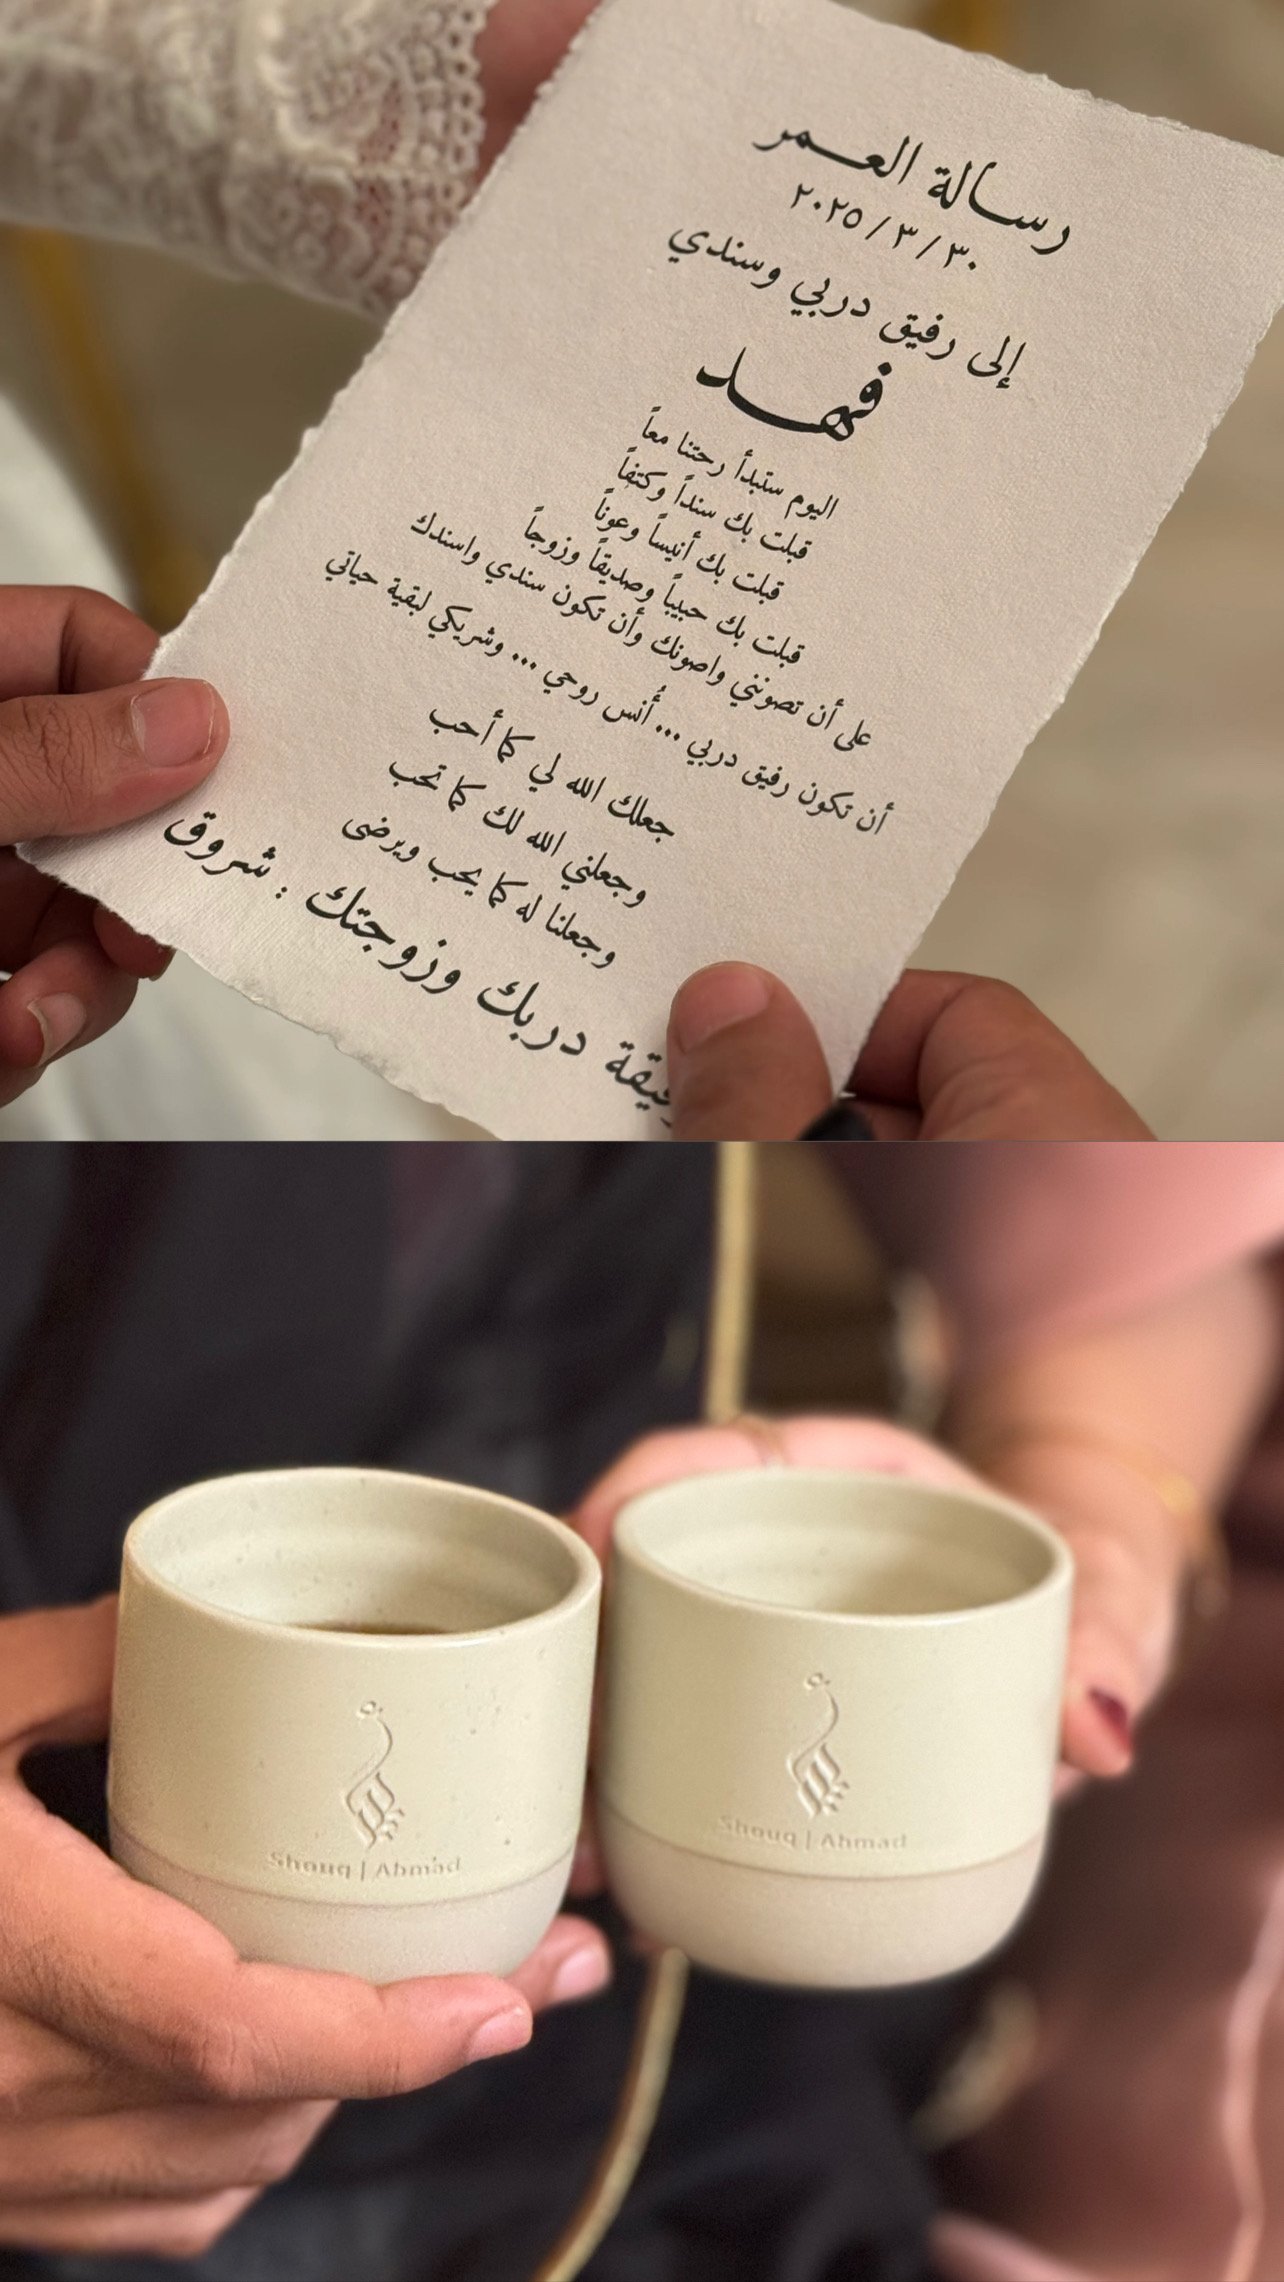 رسالة العمر
٢٠٢٥ / ٣ / ٣٠
إلى رفيق دربي وسندي
فهد
اليوم ستبدأ رحتنا معاً
قبلت بك سنداً وكتفاً
قبلت بك أنيساً وعوناً
قبلت بك حبيباً وصديقاً وزوجاً
على أن تصونني واصونك وأن تكون سندي واسندك
أن تكون رفيق دربي ... أُنس روحي ... وشريكي لبقية حياتي
جعلك الله لي كما أحب
وجعلني الله لك كما تحب
وجعلنا له كما يحب ويرضى
دربك وزوجتك : شروق
Shouq | Ahmad
Shouq | Ahmad